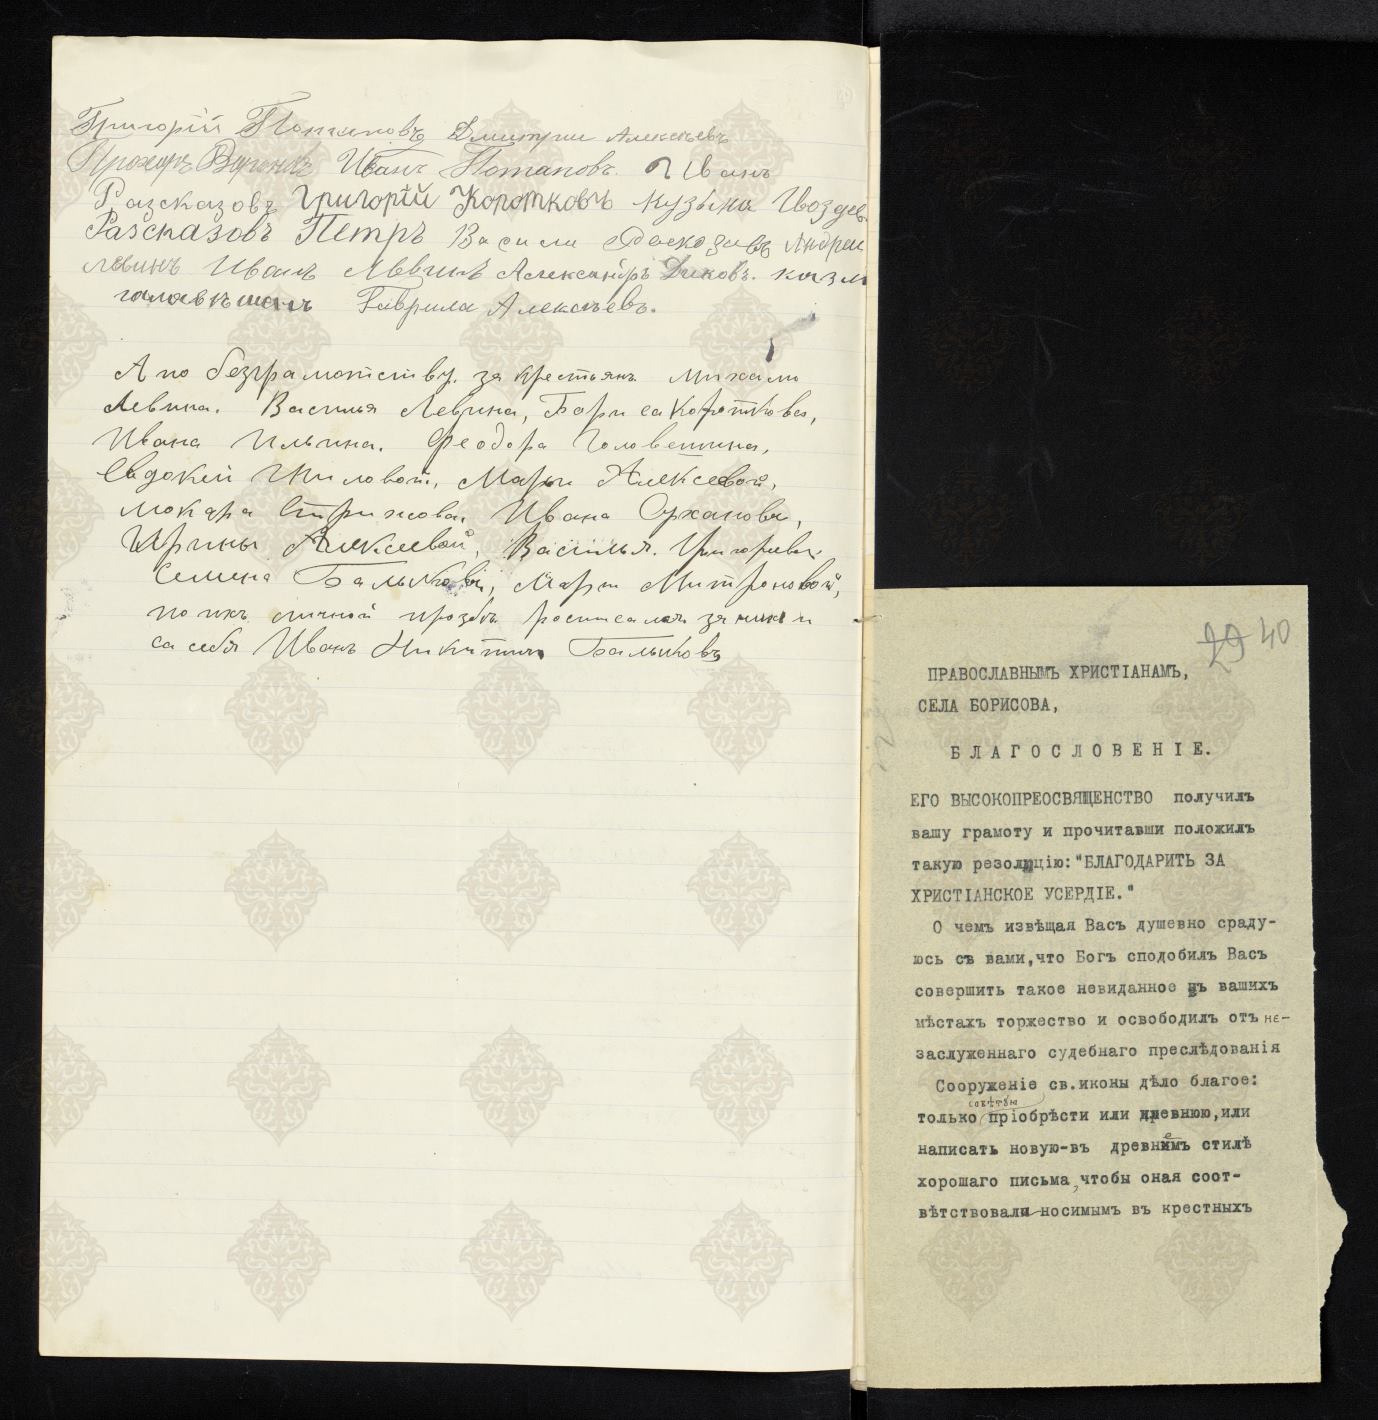 Григорій Потаповъ Дмитрии Алексѣевъ
Прохоръ Иванъ Потаповъ. Иванъ
Разсказовъ Григорій Коротковъ Кузьма Гвоздев
Разсказовъ Петръ Васили Андреи
Левинъ Иванъ Лѣвинъ Александръ Дековъ. козм
Гаврила Алексѣевъ.
А по безграмотству. за крестьянъ Михаила
Левина. Василья Левина, Бориса Короткова,
Ивана Ильина. Феодора Головешкина,
Евдокеи Жиловой, Марьи Алексевой,
Мокара Стрижова, Ивана Орханова,
Ирины Алексеевой, Василья. Григорьева.
Семена Балыкова, Марьи Митроновой,
по ихъ личной прозбѣ росписался за них и
са себя Иванъ Никитинъ Балыковъ
29 40
ПРАВОСЛАВНЫМЪ ХРИСТІАНАМЪ,
СЕЛА БОРИСОВА,
БЛАГОСЛОВЕНІЕ.
ЕГО ВЫСОКОПРЕОСВЯЩЕНСТВО получилъ
вашу грамоту и прочитавши положилъ
такую резолюцію: "БЛАГОДАРИТЬ ЗА
ХРИСТІАНСКОЕ УСЕРДІЕ."
О чемъ извѣщая Васъ душевно сраду-
юсь съ вами,что Богъ сподобилъ Васъ
совершить такое невиданное въ вашихъ
мѣстахъ торжество и освободилъ отъ не-
заслуженнаго судебнаго преслѣдованія
Сооруженіе св.иконы дѣло благое:
совѣтую
только пріобрѣсти или древнюю,или
написать новую-въ древнемъ стилѣ
хорошаго письма,чтобы оная соот-
вѣтствовала носимымъ въ крестныхъ